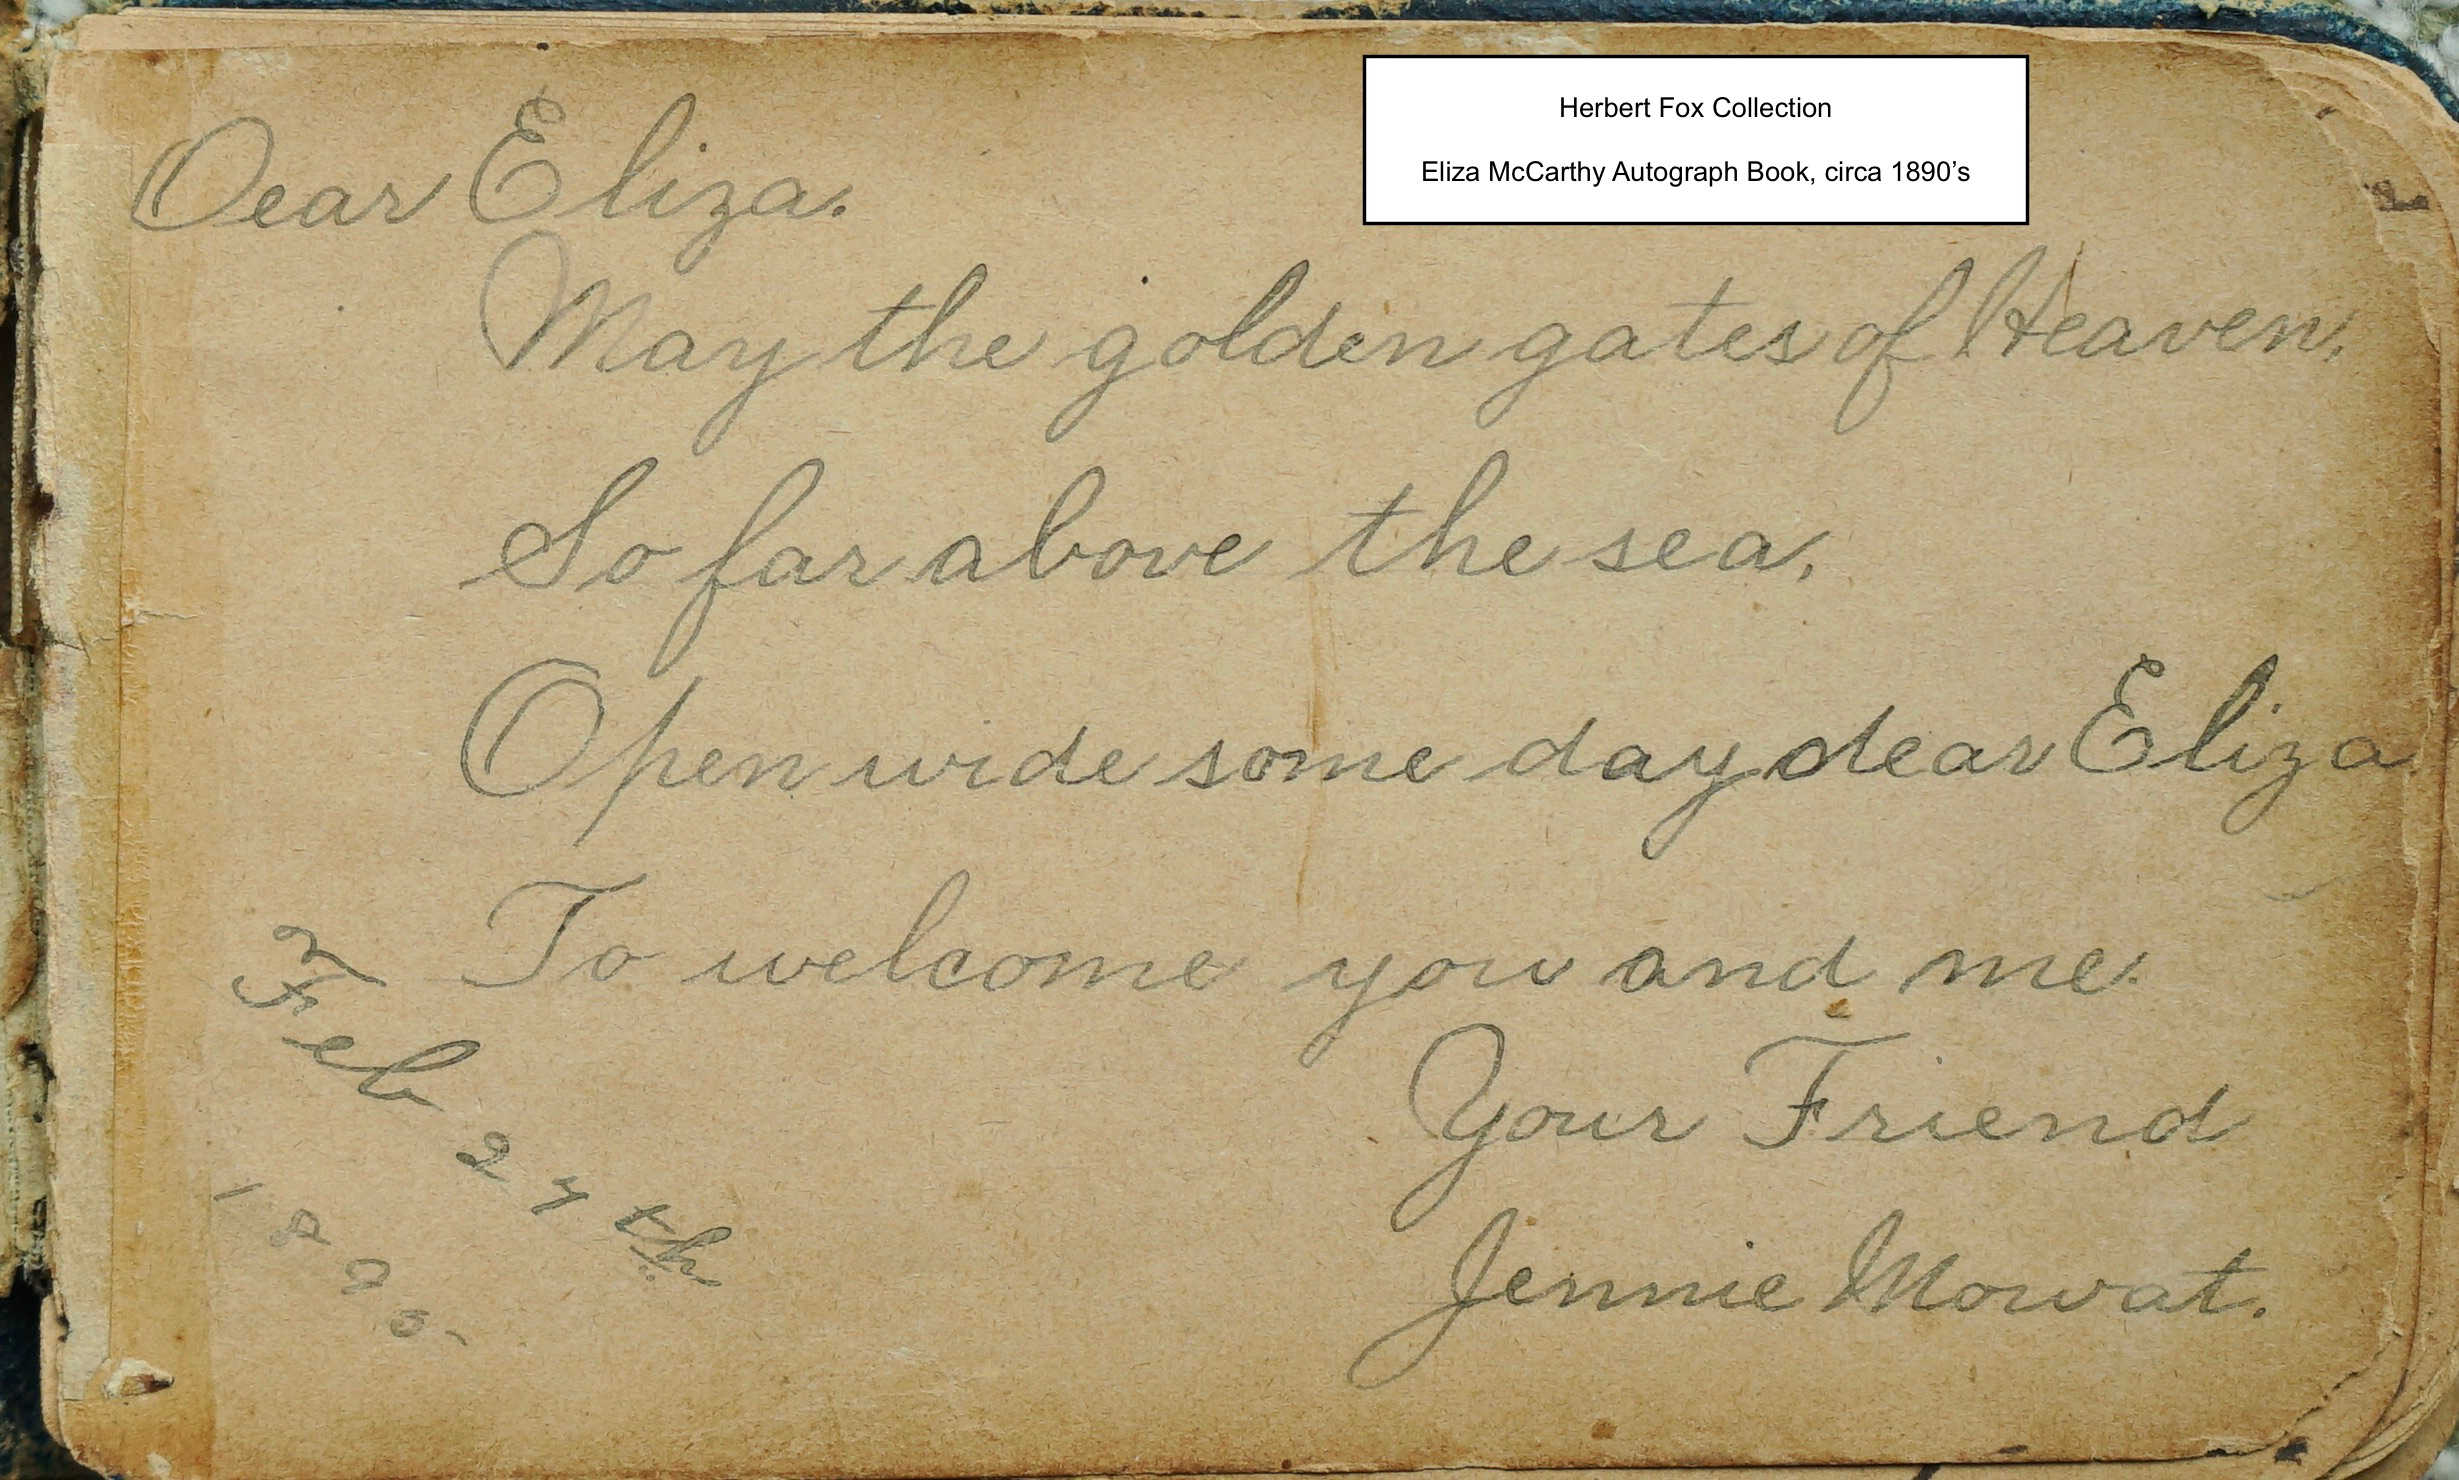 Herbert Fox Collection
Eliza McCarthy Autograph Book, circa 1890’s
Dear Eliza.
May the golden gates of Heaven,
So far above the sea,
Open wide some day dear Eliza
To welcome you and me.
Your Friend
Jennie Mowat.
Feb 27th